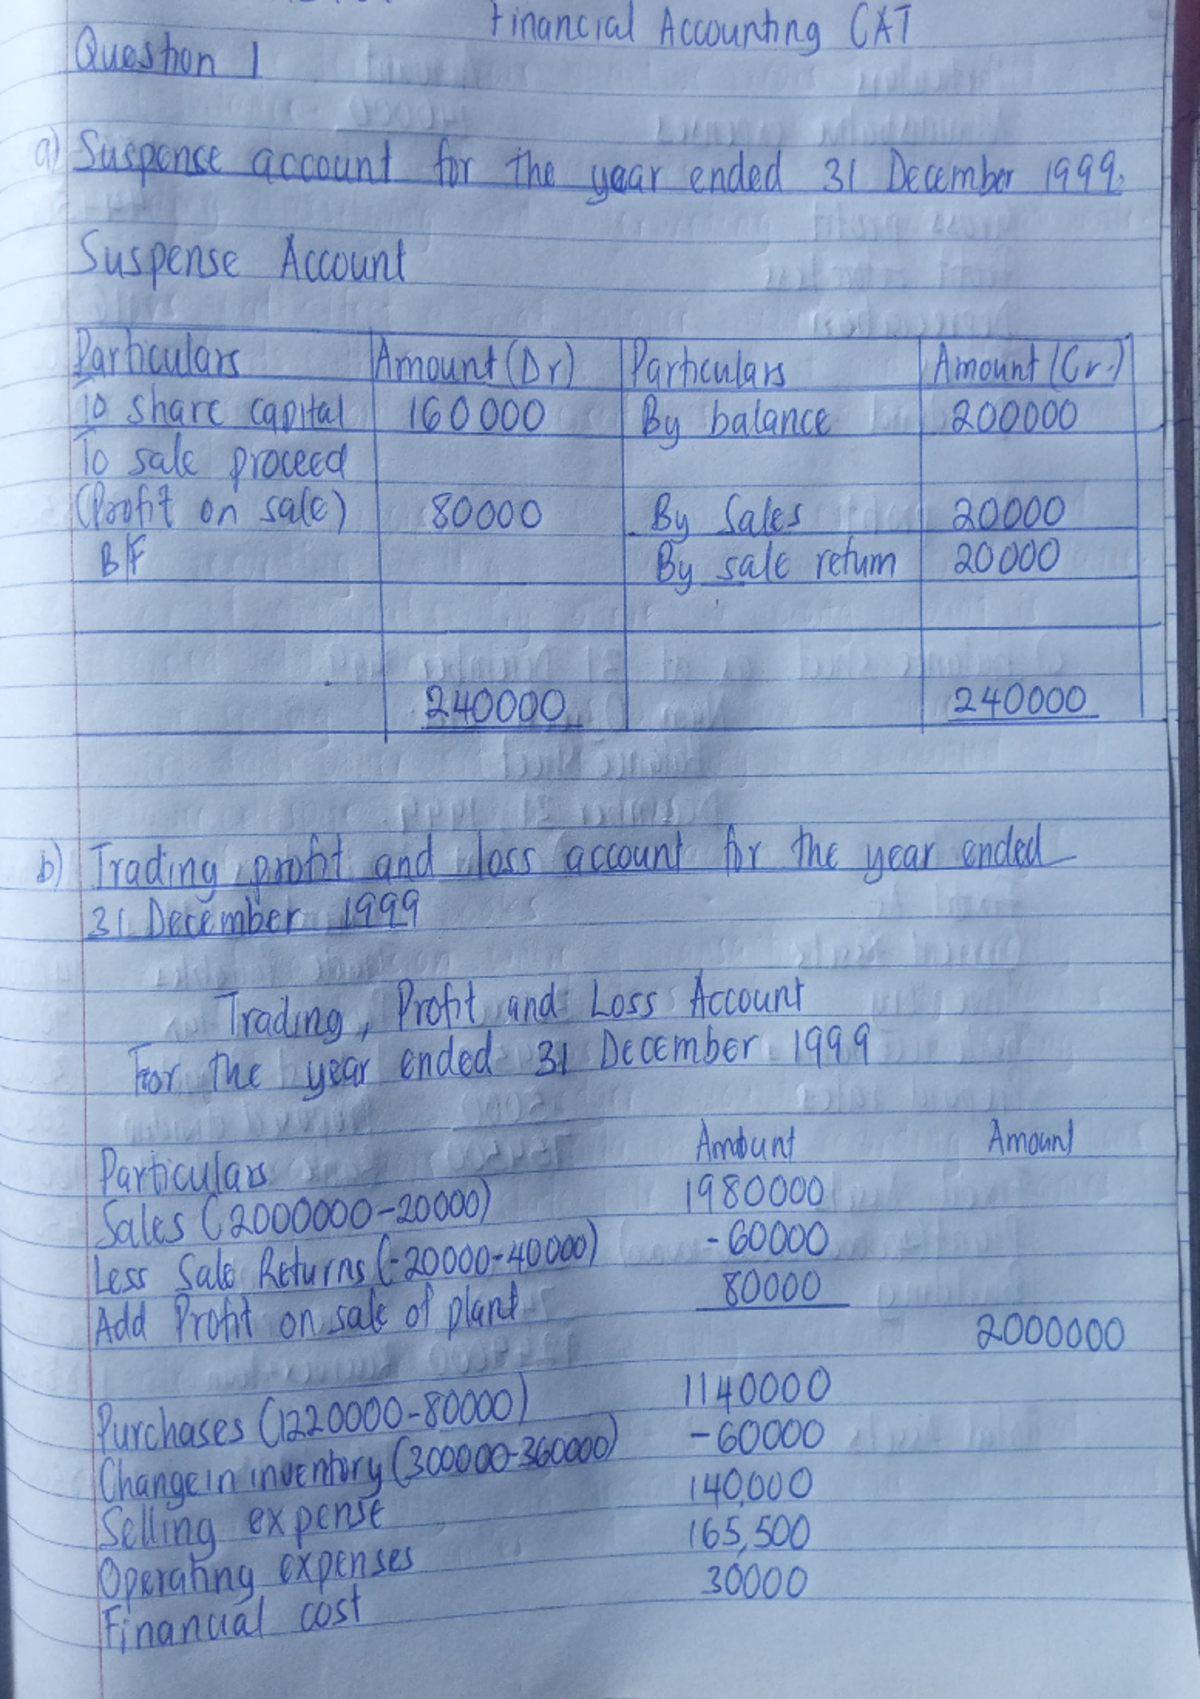 Financial Accounting CAT
Question 1
a) Suspense account for the year ended 31 December 1999.
Suspense Account
Particulars Amount (Dr) Particulars Amount (Cr.)
To share capital 160000 By balance 200000
To sale proceed
(Profit on sale) 80000 By Sales 20000
B/F By sale return 20000
240000 240000
b) Trading, profit and loss account for the year ended
31 December 1999
Trading, Profit and Loss Account
For the year ended 31 December 1999
Particulars Amount Amount
Sales (2000000-20000) 1980000
Less Sale Returns (-20000-40000) -60000
Add Profit on sale of plant 80000
2000000
Purchases (1220000-80000) 1140000
Change in inventory (300000-360000) -60000
Selling expense 140,000
Operating expenses 165,500
Financial cost 30000